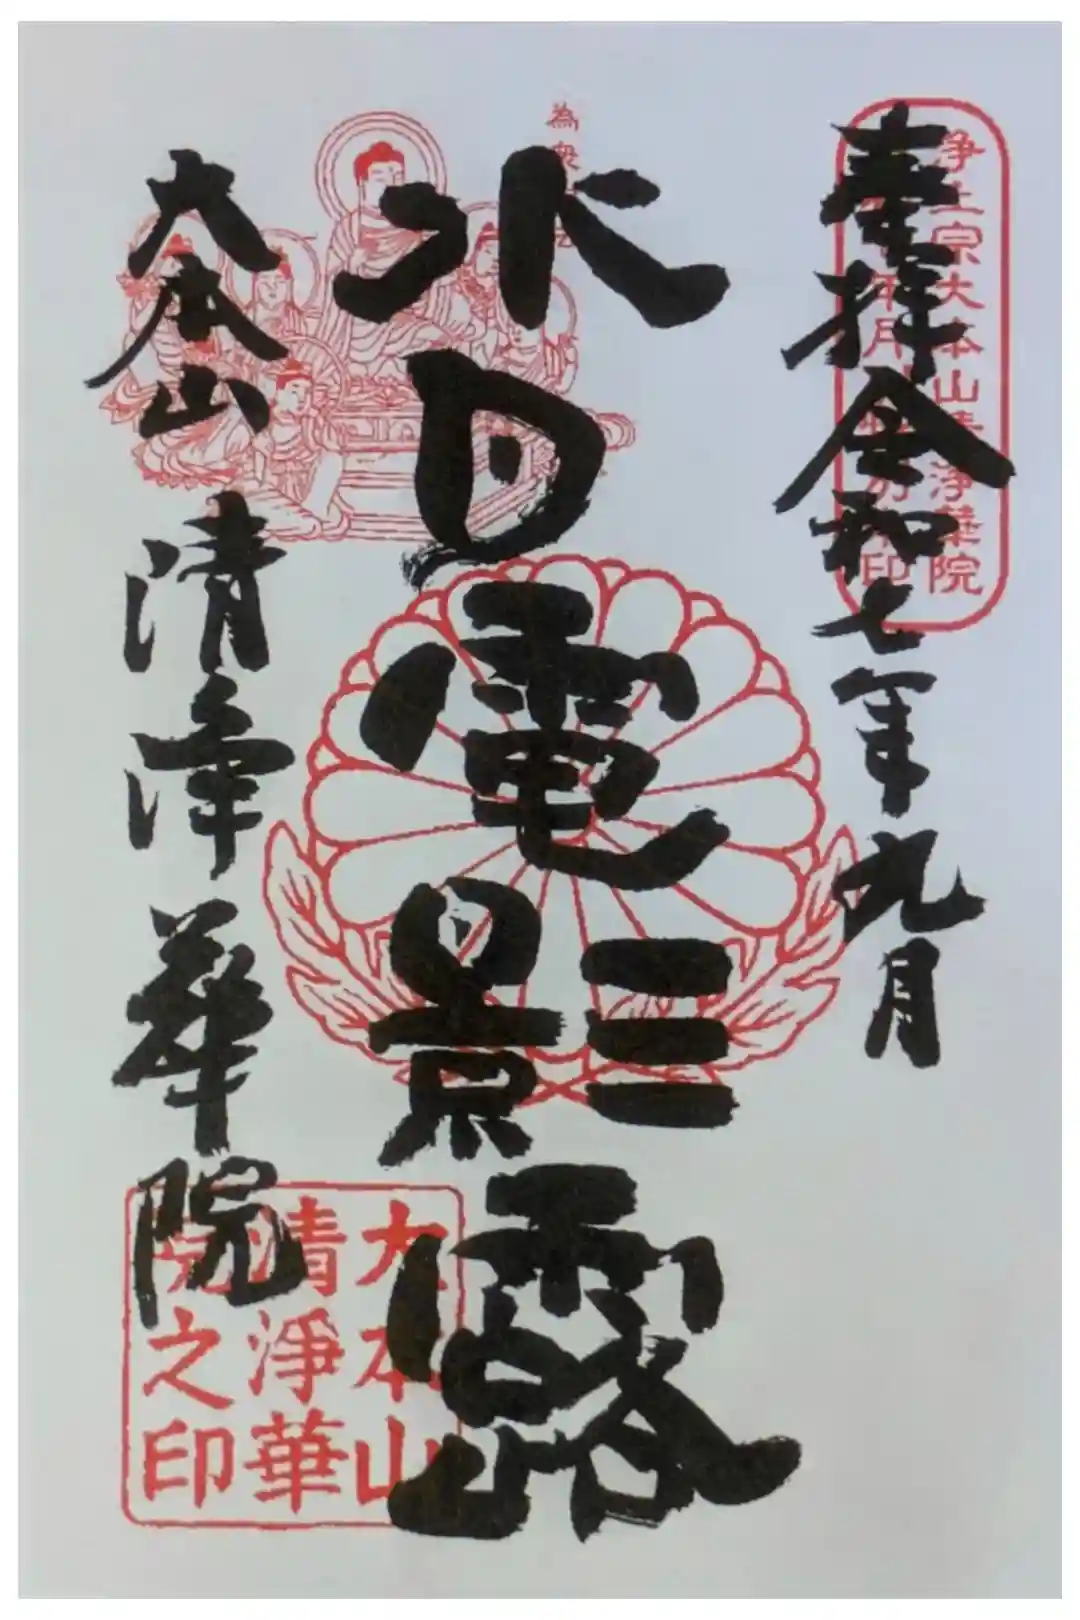 浄土宗大本山清浄華院
奉拝 令和七年九月
水月電影露
大本山 清浄華院
大本山
清淨華
院之印
為